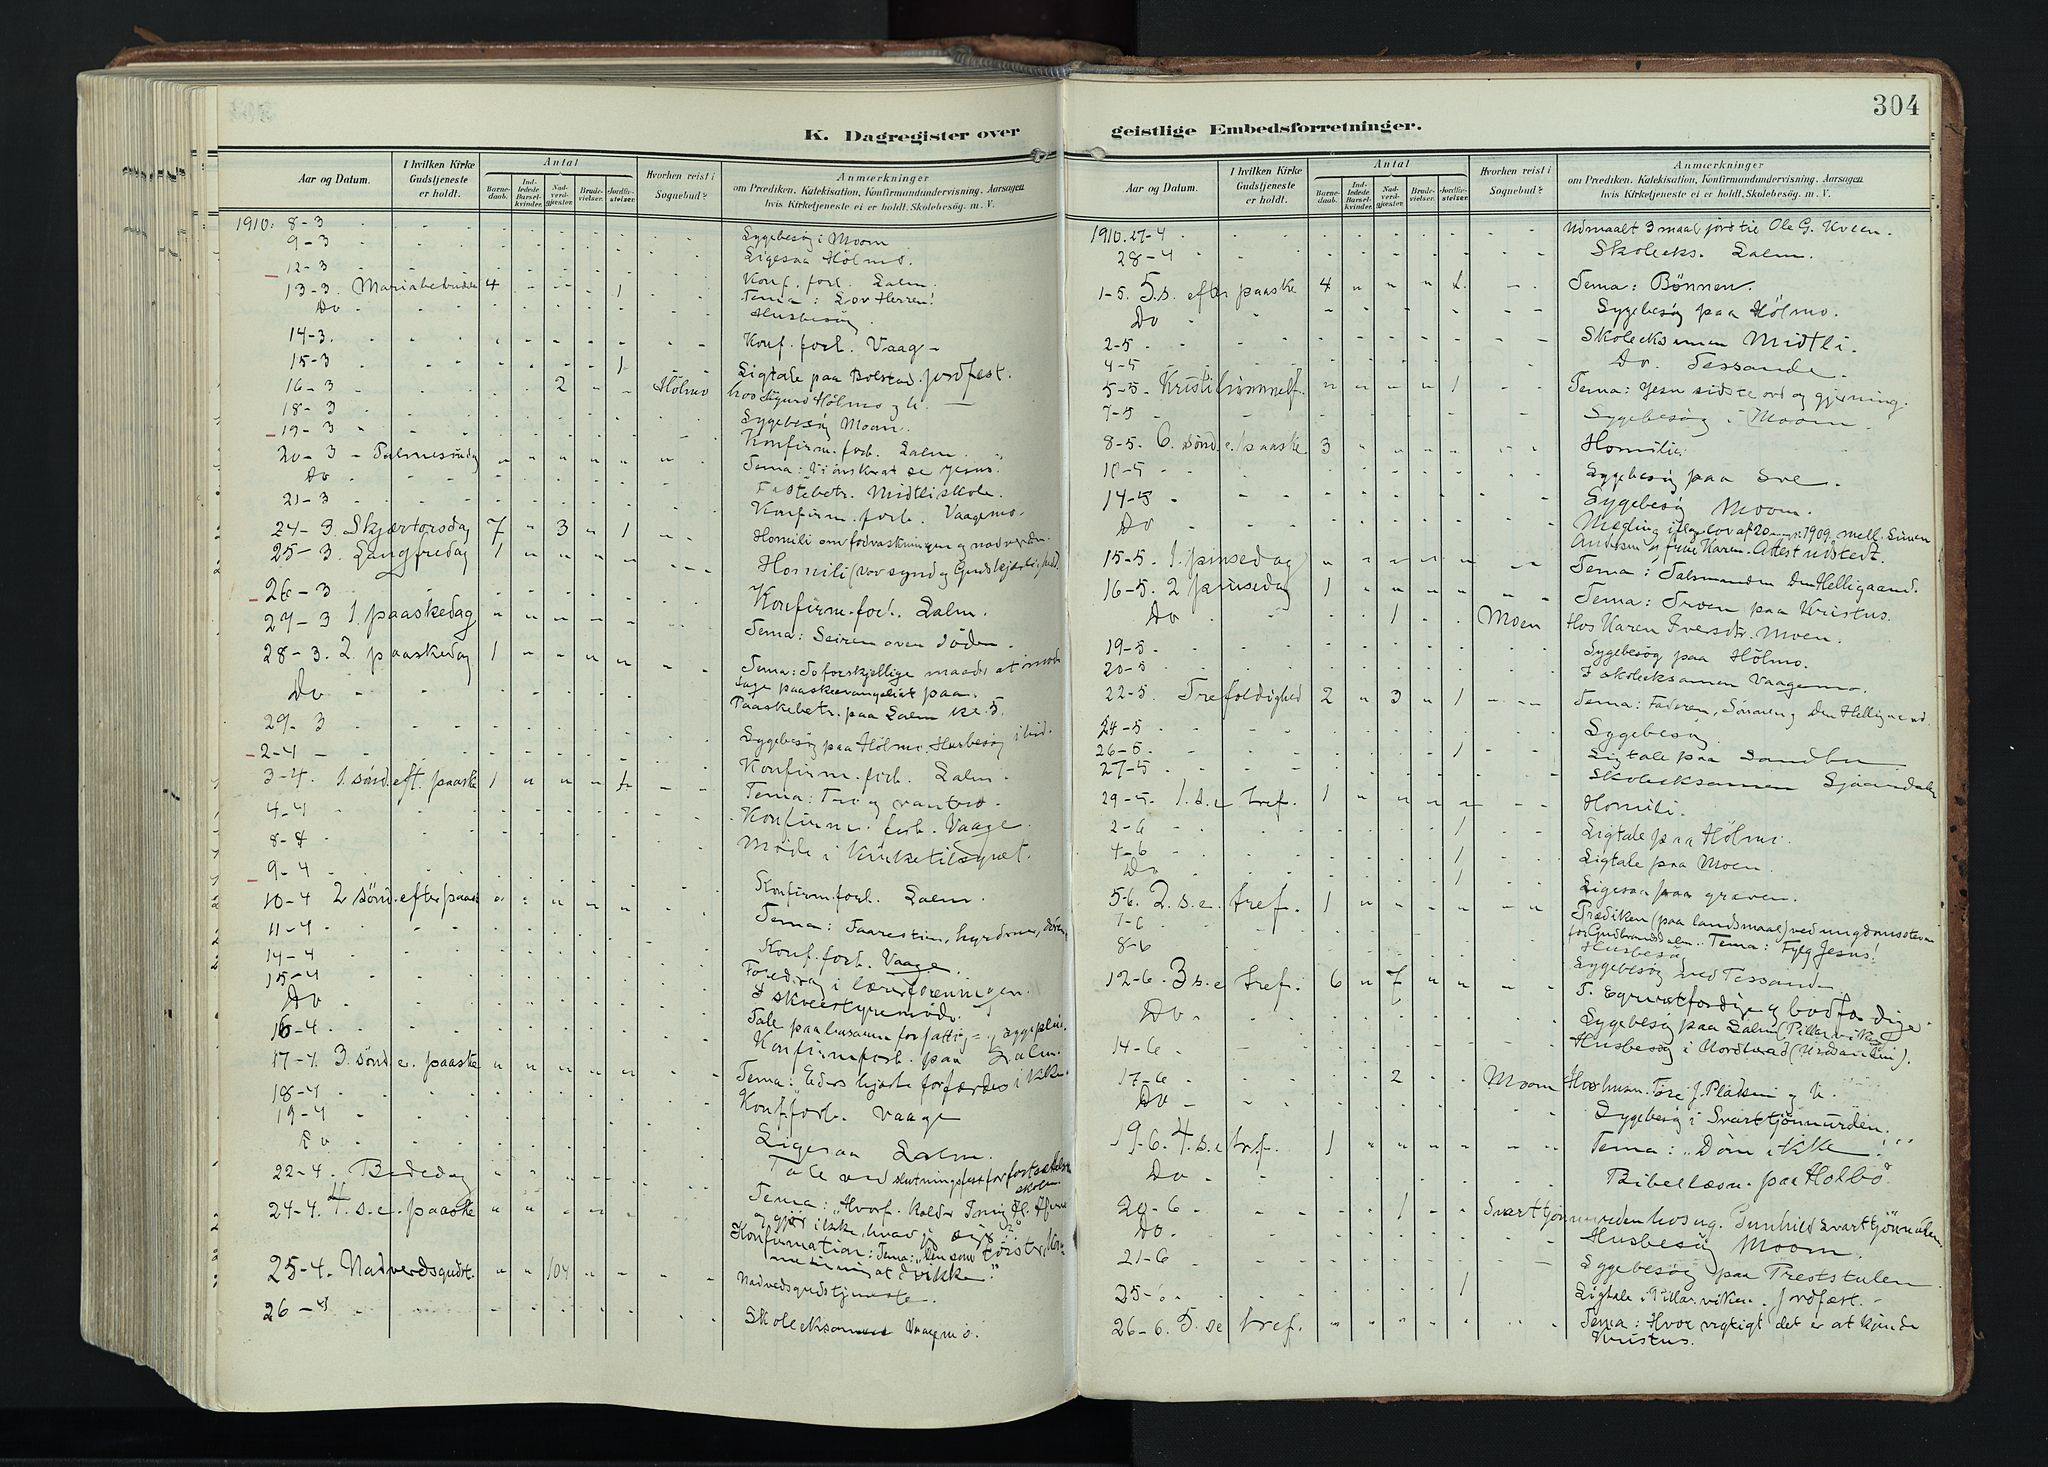 304
K. Dagregister over
Aar og Datum.
I hvilken Kirke Gudstjeneste er holdt.
Antal
Barnedaab.
Indledede Barselkvinder.
Nadverdgjester.
Brudevielser.
Jordfæstelser.
Hvorhen reist i Sognebud?
Anmærkninger
om Prædiken, Katekisation, Konfirmandundervisning, Aarsagen
hvis Kirketjeneste ei er holdt, Skolebesøg, m. V.
1910. 8-3 Sygebesøg i Moom
9-3 Ligesaa Hölmo.
12-3 Konf. forb. Lalm.
13-3 Mariabebudelse 4 1 Tema: Lov Herren!
Do Husbesøg.
14-3 Konf. forb. Vaage
15-3 1 Ligtale paa Bolstad. jordfest.
16-3 2 Hölmo hos Sigurd Hölmo og h.
18-3 Sygebesøg Moom.
19-3 Konfirm. forb. Lalm.
20-3 Palmesöndag Tema: Vi önsker at se Jesus.
Do Fastebetr. Midtliskole.
21-3 Konfirm. forb. Vaagemo.
24-3 Skjærtorsdag 7 " 3 " 1 Homili om fodvaskningen og nadverden.
25-3. Langfredag 1 " " " Homili (Vor synd og Guds kjærlighed.
26-3 Konfirm. forb. Lalm.
27-3 1. paaskedag Tema: Seiren over döden.
28-3. 2. paaskedag 1 Tema: To forskjellige maader at mod-
tage paaskeevangeliet paa.
Do Paaskebetr. paa Lalm kl. 5.
29-3 Sygebesøg paa Hölmo. Husbesøg
2-4 Konfirm. forb. Lalm.
3-4. 1. sönd. eft. paaske 1 " " " 1 Tema: Tro og vantro.
4-4 Konfirm. forb. Vaage.
8-4 Möde i Kirketilsynet.
9-4 Konfirm. forb. Lalm.
10-4 2 sönd. efter paaske Tema: Faarestien, hyrden, dören
11-4 Konf. forb. Vaage.
14-4 Foredrag i lærerforeningen.
15-4
Do
16-4 Konfirm. forb. paa Lalm.
17-4. 3. sönd. e. paaske Tema: Eders hjerte forfærdes ikke.
18-4 Konf. forb. Vaage
19-4 Ligesaa Lalm.
Do Tale ved slutningsfest for fortsættelses
skolen
22-4. Bededag Tema: "Hvorf. kalder I mig H. Herre
og gjör ikke, hvad jeg siger?"
24-4. 4. s. e. paaske Konfirmation: Tema: "Den som törster, kom-
25-4. Nadverdsgudst. " " 104 Nadverdsgudstjeneste.
26-4 Skoleeksamen Vaagemo.
geistlige Embedsforretninger.
Aar og Datum.
I hvilken Kirke Gudstjeneste er holdt.
Antal
Barnedaab.
Indledede Barselkvinder.
Nadverdgjester.
Brudevielser.
Jordfæstelser.
Hvorhen reist i Sognebud?
Anmærkninger
om Prædiken, Katekisation, Konfirmandundervisning, Aarsagen
hvis Kirketjeneste ei er holdt, Skolebesøg, m. V.
1910. 27-4 Udmaalt 3 maal jord til Ole G. Kveen.
28-4 Skoleeks. Lalm.
1-5. 5. s. efter paaske 4 " " " 1 Tema: Bønnen.
Do Sygebesøg paa Hölmo.
2-5 Skoleeksamen Midtli.
4-5 Do. Tessande.
5-5 Kristi himmelf. " " " " 1 Tema: Jesu sidste ord og gjerning.
7-5 Sygebesøg i Moom.
8-5. 6. sönd. e. paaske 3 Homilie
10-5 Sygebesøg paa Sve.
14-5 Sygebesøg Moom.
Do Mægling ifølge lov af 20 1909 mell. Simen
Andersen og frue Karen. Attest udstedt.
15-5. 1. pinsedag Tema: Talsmanden den Helligaand.
16-5. 2 pinsedag 1 Tema: Troen paa Kristus.
Do 1 Moen Hos Karen Iversdtr. Moen.
19-5 Sygebesøg paa Hölmo.
20-5 Skoleeksamen Vaagemo.
22-5. Trefoldighed 2 " 3 " 1 Tema: Faderen, Sönnen og den Helligaand.
24-5 Sygebesøg.
26-5 1 Ligtale paa Sandbu
27-5 Skoleeksamen Sjaardalen
29-5. 1. s. e tref. 1 Homili.
2-6 1 Ligtale paa Hölmo.
4-6 1 Ligtale paa Moen.
Do 1 Ligesaa paa graven.
5-6. 2. s. e. tref. 1 Prædiken (paa landsmaal) ved ungdomsstevne
for Gudbrandsdalen. Tema: Fylg Jesus!
7-6 Husbesøg
8-6 Sygebesøg ved Tessand.
12-6. 3 s. e tref. 6 " 7
Do Sygebesøg paa Lalm (Pillarviken)
14-6 Husbesøg i Nordherad
17-6 2 Moom Hos husm. Tore J. Plaken og h.
Do Sygebesøg i Svarttjönnurden.
19-6. 4. s. e tref. 1 Tema: "Döm ikke!"
Do Bibellæsn. paa Holbö.
20-6 1 Svarttjönnurden hos ug. Gunhild Svarttjönnurden.
Do. Husbesøg Moom.
21-6 Sygebesøg paa Preststulen
25-6 1 Ligtale i Pillarviken. Jordfæst.
26-6. 5. s e tref. Tema: Hvor vigtigt det er at kjende
Kristus.